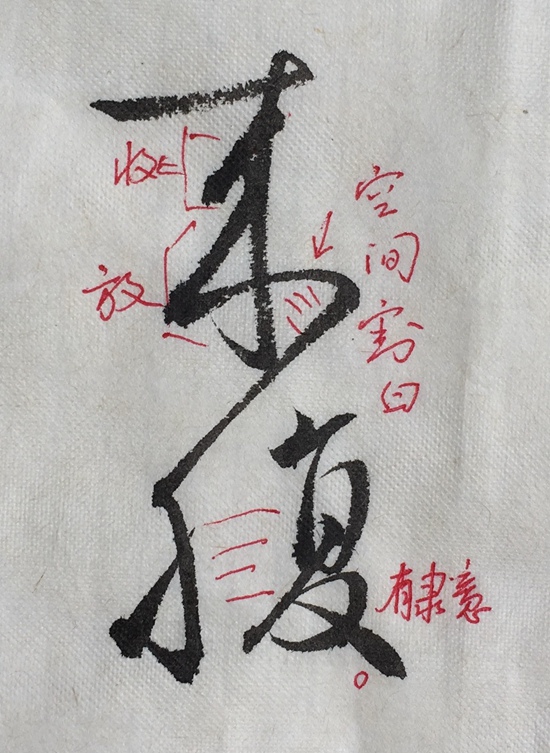 来復
收
放
空间割白
有隶意